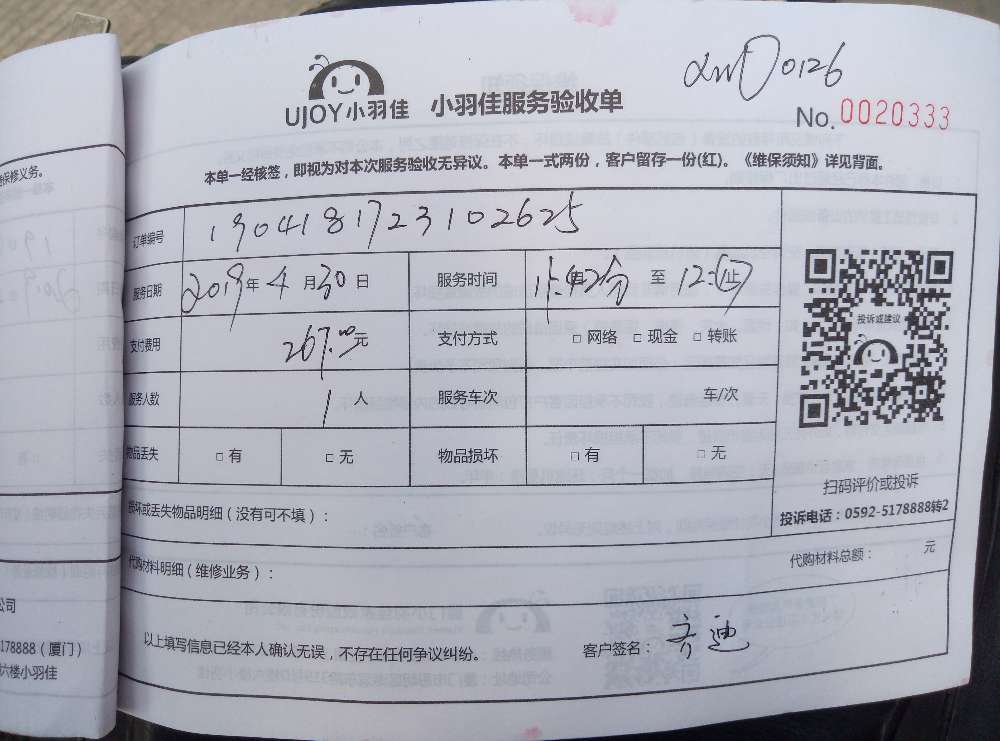 0126
UJOY小羽佳 小羽佳服务验收单
No. 0020333
本单一经核签，即视为对本次服务验收无异议。本单一式两份，客户留存一份(红)。《维保须知》详见背面。
保修义务。
订单编号 1904181723102625
服务日期 2019年4月30日 服务时间 至 12:
支付费用 267.00元 支付方式 □ 网络 □ 现金 □ 转账
服务人数 1人 服务车次 车/次
物品丢失 □ 有 □ 无 物品损坏 □ 有 □ 无
投诉或建议
扫码评价或投诉
投诉电话：0592-5178888转2
损坏或丢失物品明细（没有可不填）：
代购材料明细（维修业务）： 代购材料总额： 元
以上填写信息已经本人确认无误，不存在任何争议纠纷。 客户签名： 齐迪
公司
178888（厦门）
六楼小羽佳